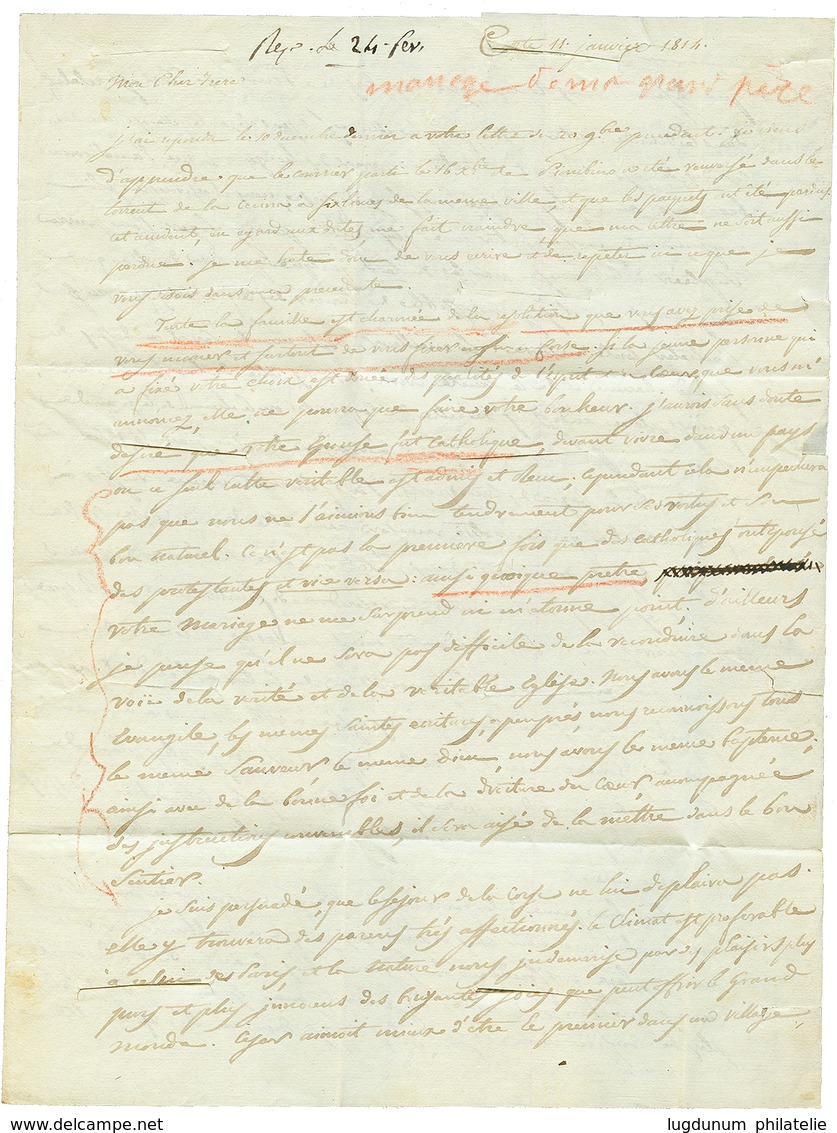 Rep. Le 24 fev.
Corte 11 janvier 1814.
Mon Cher frere
mariage de mon grand père
j'ai repondu le 10 decembre dernier a votre lettre du 20 9bre
d'apprendre que le courrier parti le 16 Xbre de Piombino a été renversé dans le
torrent de la Cecina à six lieues de la meme ville, et que les paquets ont été perdus
cet accident, eu egard aux dates me fait craindre que ma lettre ne soit aussi
perdue. je me hate donc de vous ecrire et de repeter ici ce que je
vous disois dans ma precedente.
Toute la famille est charmée de la resolution que vous avez prise de
vous marier et surtout de vous fixer en Corse. Si la jeune personne qui
a fixé vôtre choix est douée des qualités de l'esprit et du Coeur que vous m'
annoncez, elle ne pourra que faire votre bonheur. j'aurois sans doute
desiré que vôtre Epouse fut Catholique, devant vivre dans un pays
ou ce seul culte veritable est admis et connu; cependant cela n'empechera
pas que nous ne l'aimions bien tendrement pour ses vertus et son
bon naturel. Ce n'est pas la premiere fois que des catholiques ont epousé
des protestantes, et vice versa: ainsi quoique prêtre,
votre mariage ne me surprend ni m'etonne point. D'ailleurs
je pense qu'il ne sera pas difficile de la reconduire dans la
voïe de la verité et de la veritable Eglise. Nous avons le meme
Evangile, les memes saintes ecritures, a peu près, nous reconnoissons tous
le meme Sauveur le meme Dieu, nous avons le meme baptême;
ainsi avec de la bonne foi et de la droiture du coeur accompagnée
des instructions convenables, il sera aisé de la mêttre dans le bon
Sentier.
je suis persuadé, que le sejour de la Corse ne lui deplaira pas.
elle y trouvera des parens très affectionnés. le Climat est preferable
à celui de Paris et la nature nous indemnise par des plaisirs plus
purs et plus innocens des bruyantes joies que peut offrir le Grand
monde. Cesar aimoit mieux d'être le premier dans un village
www.delcampe.net
lugdunum philatelie